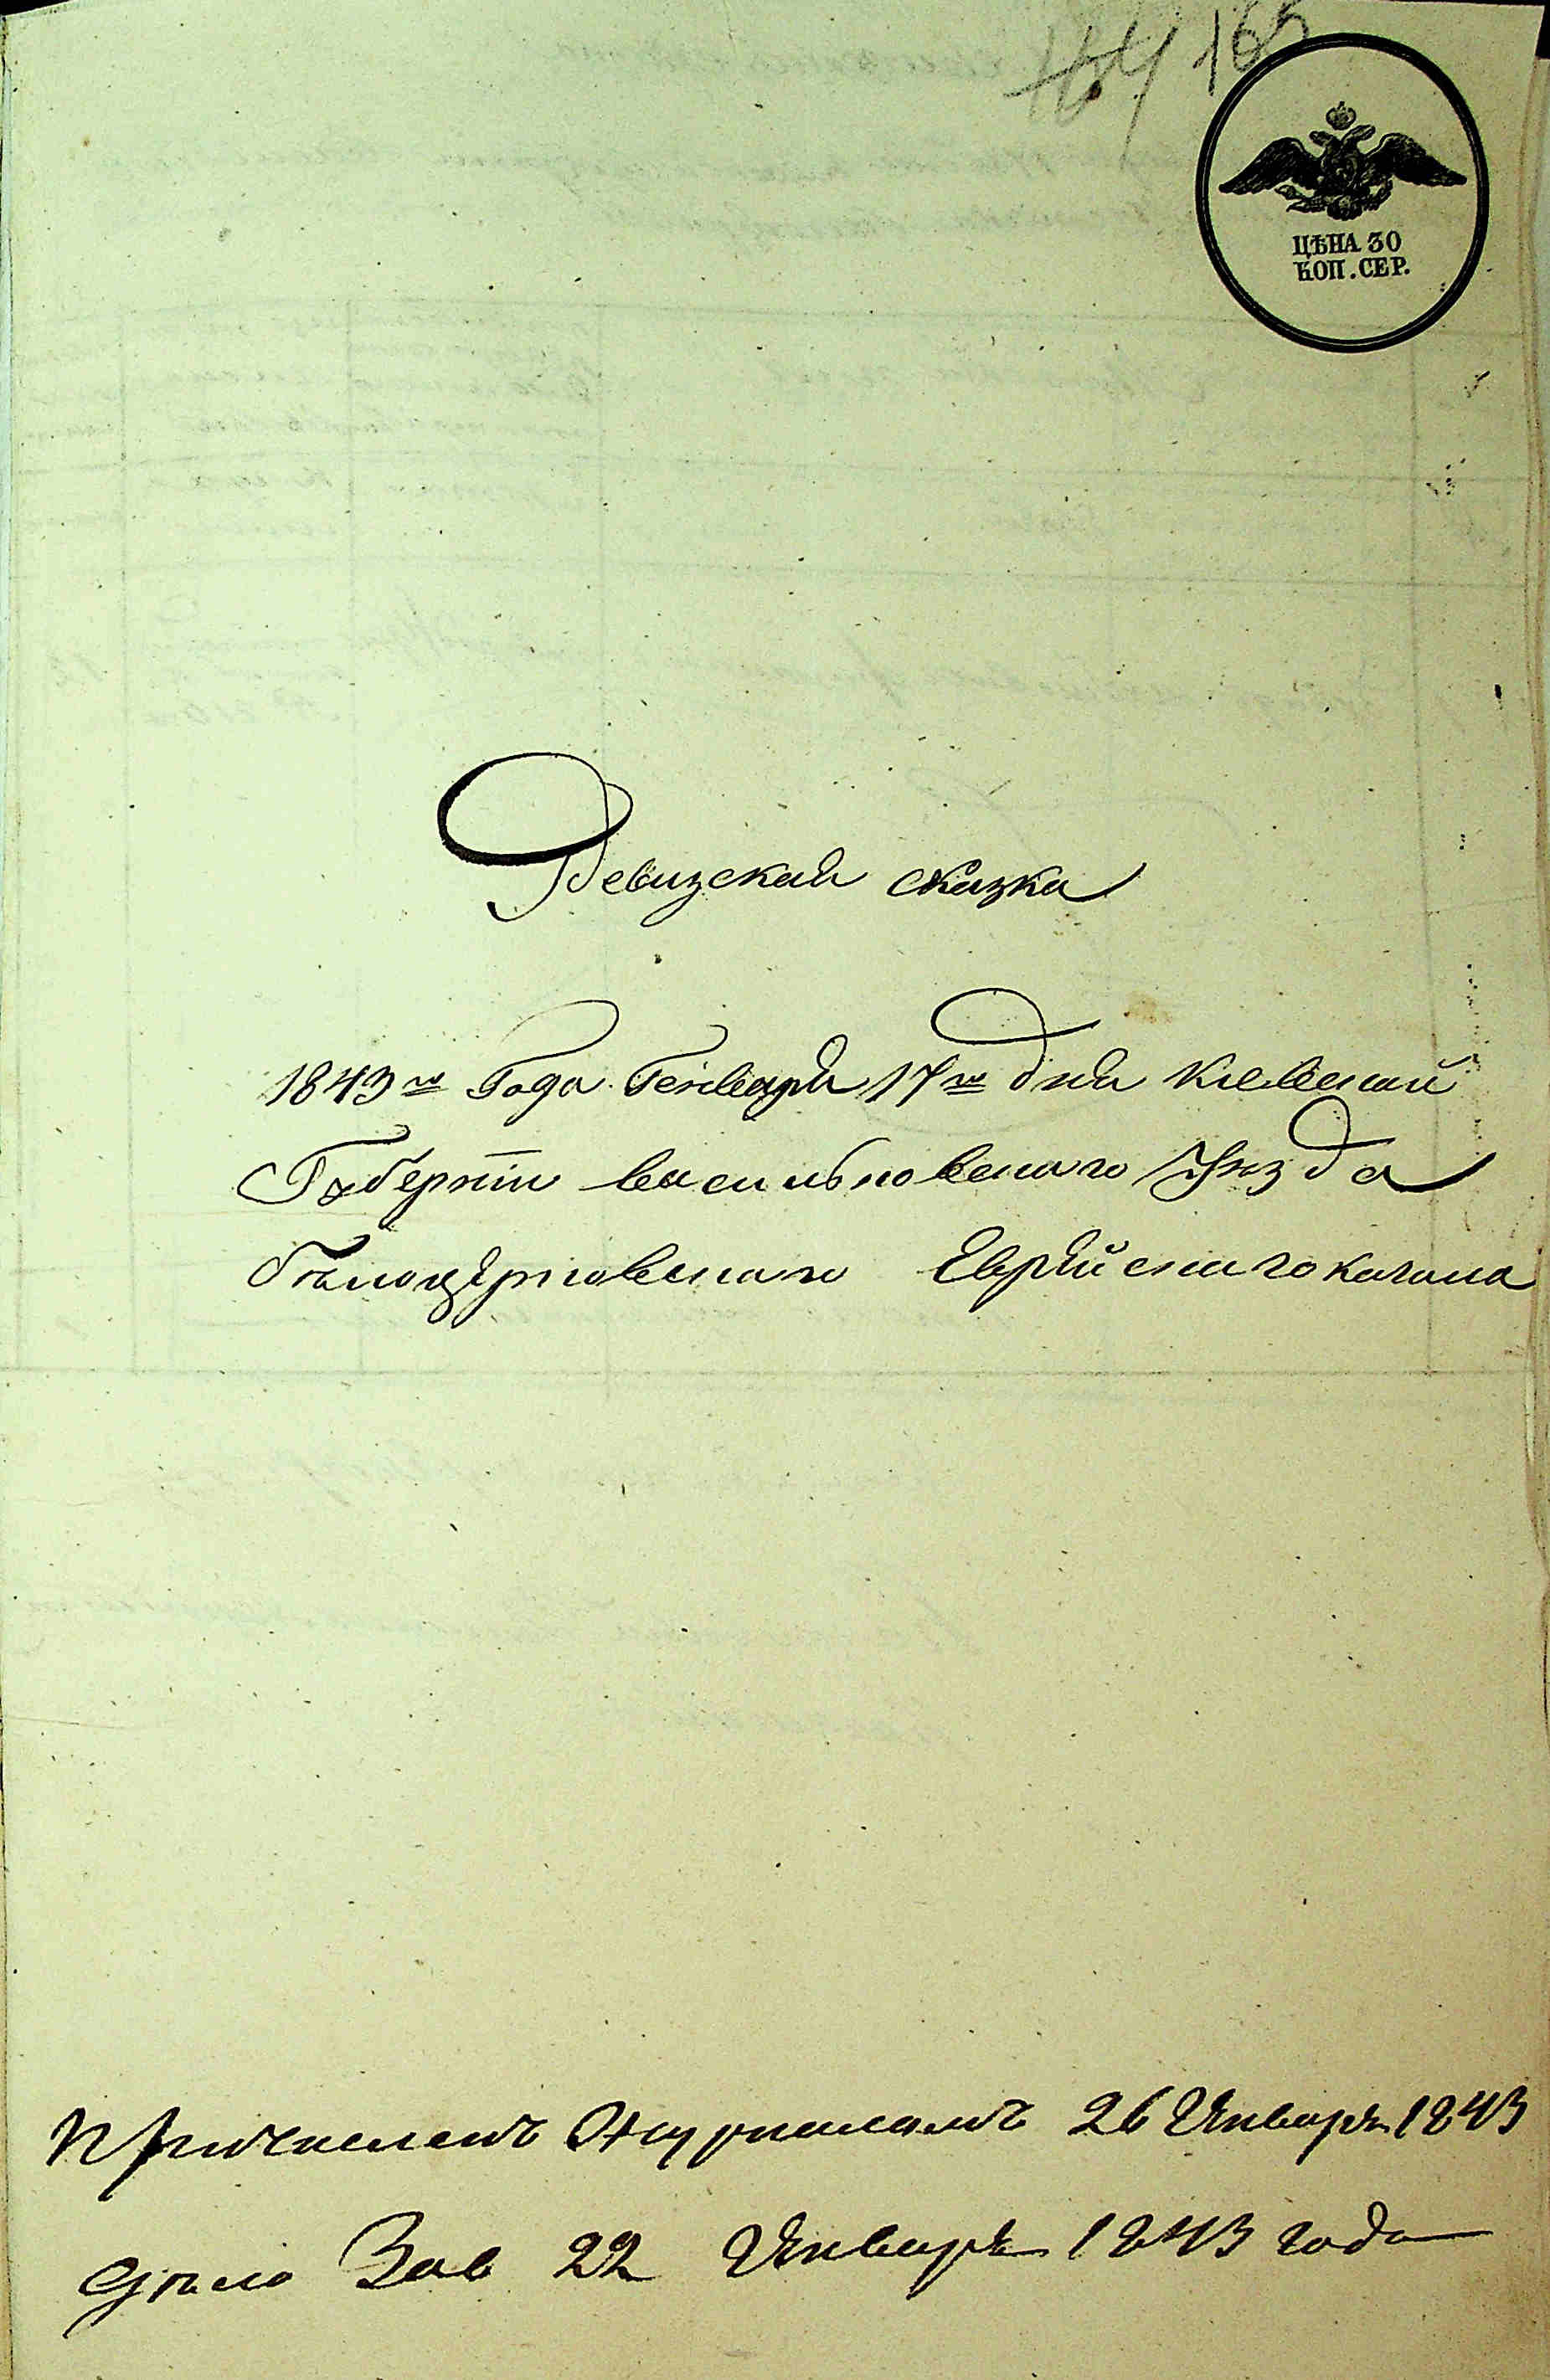 164 165
ЦѢНА 30
КОП. СЕР.
Ревизская сказка
1843го Года Генваря 17го дня Киевской
Губернiи васильковскаго Уѣзда
бѣлоцерковскаго Еврейскаго кагала
Причисленъ Журналомъ 26 Января 1843
дѣло Зав 22 Января 1843 года